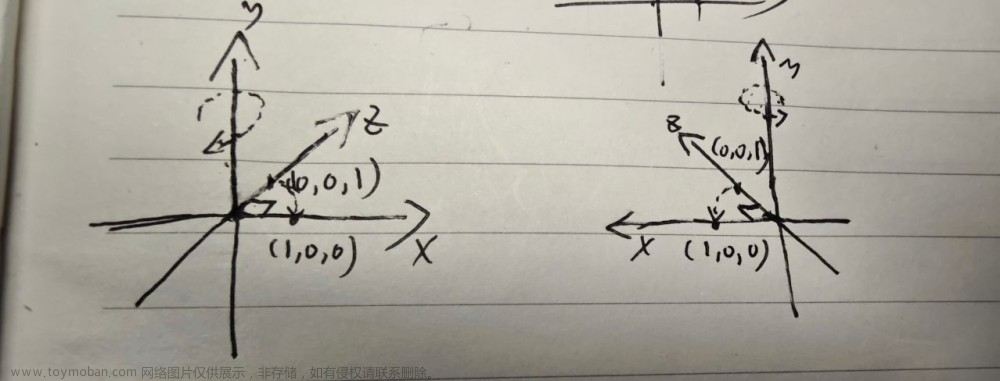 y
y
Z
z
(0,0,1)
(0,0,1)
X
(1,0,0)
X
(1,0,0)
www.toymoban.com 网络图片仅供展示，非存储，如有侵权请联系删除。